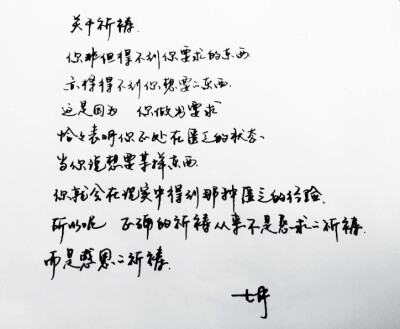 关于祈祷.
你非但得不到你要求的东西.
亦得得不到你想要二东西.
这是因为 你做为要求
恰々表明你正处在匮乏的状态.
当你说想要某样东西.
你就会在现实中得到那种匮乏的经验.
所以呢 正确的祈祷从来不是恳求二祈祷.
而是感恩二祈祷.